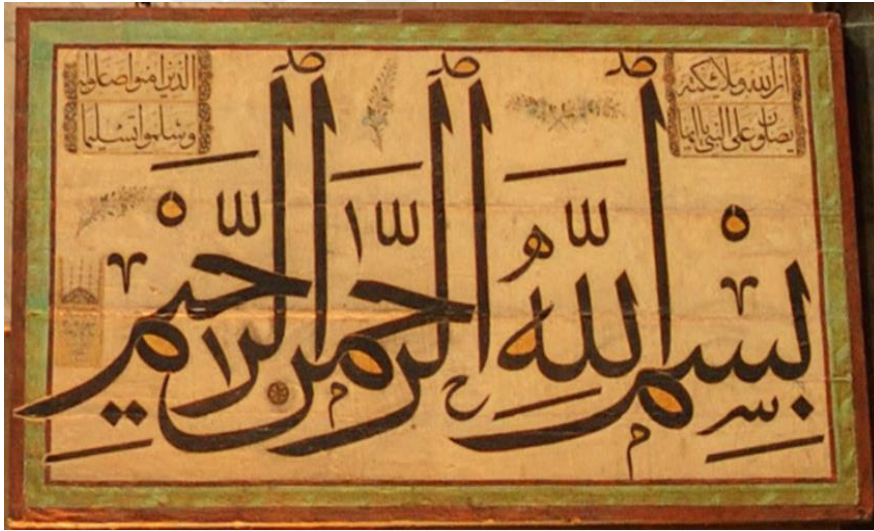 ان الله وملائكته
يصلون على النبي يا ايها
الذين امنوا صلوا عليه
وسلموا تسليما
بِسْمِ اللهِ الرَّحْمٰنِ الرَّحِيمِ